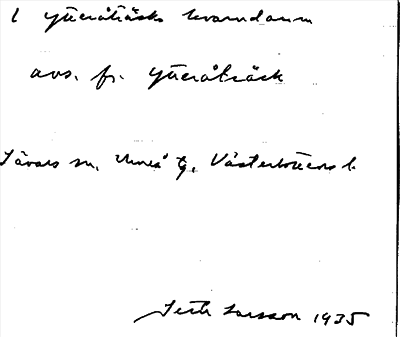 l ytteråträsks kvarndamm
avs. fr. ytteråträsk
Sävars sn, Umeå tg, Västerbottens l.
Seth Larsson 1935